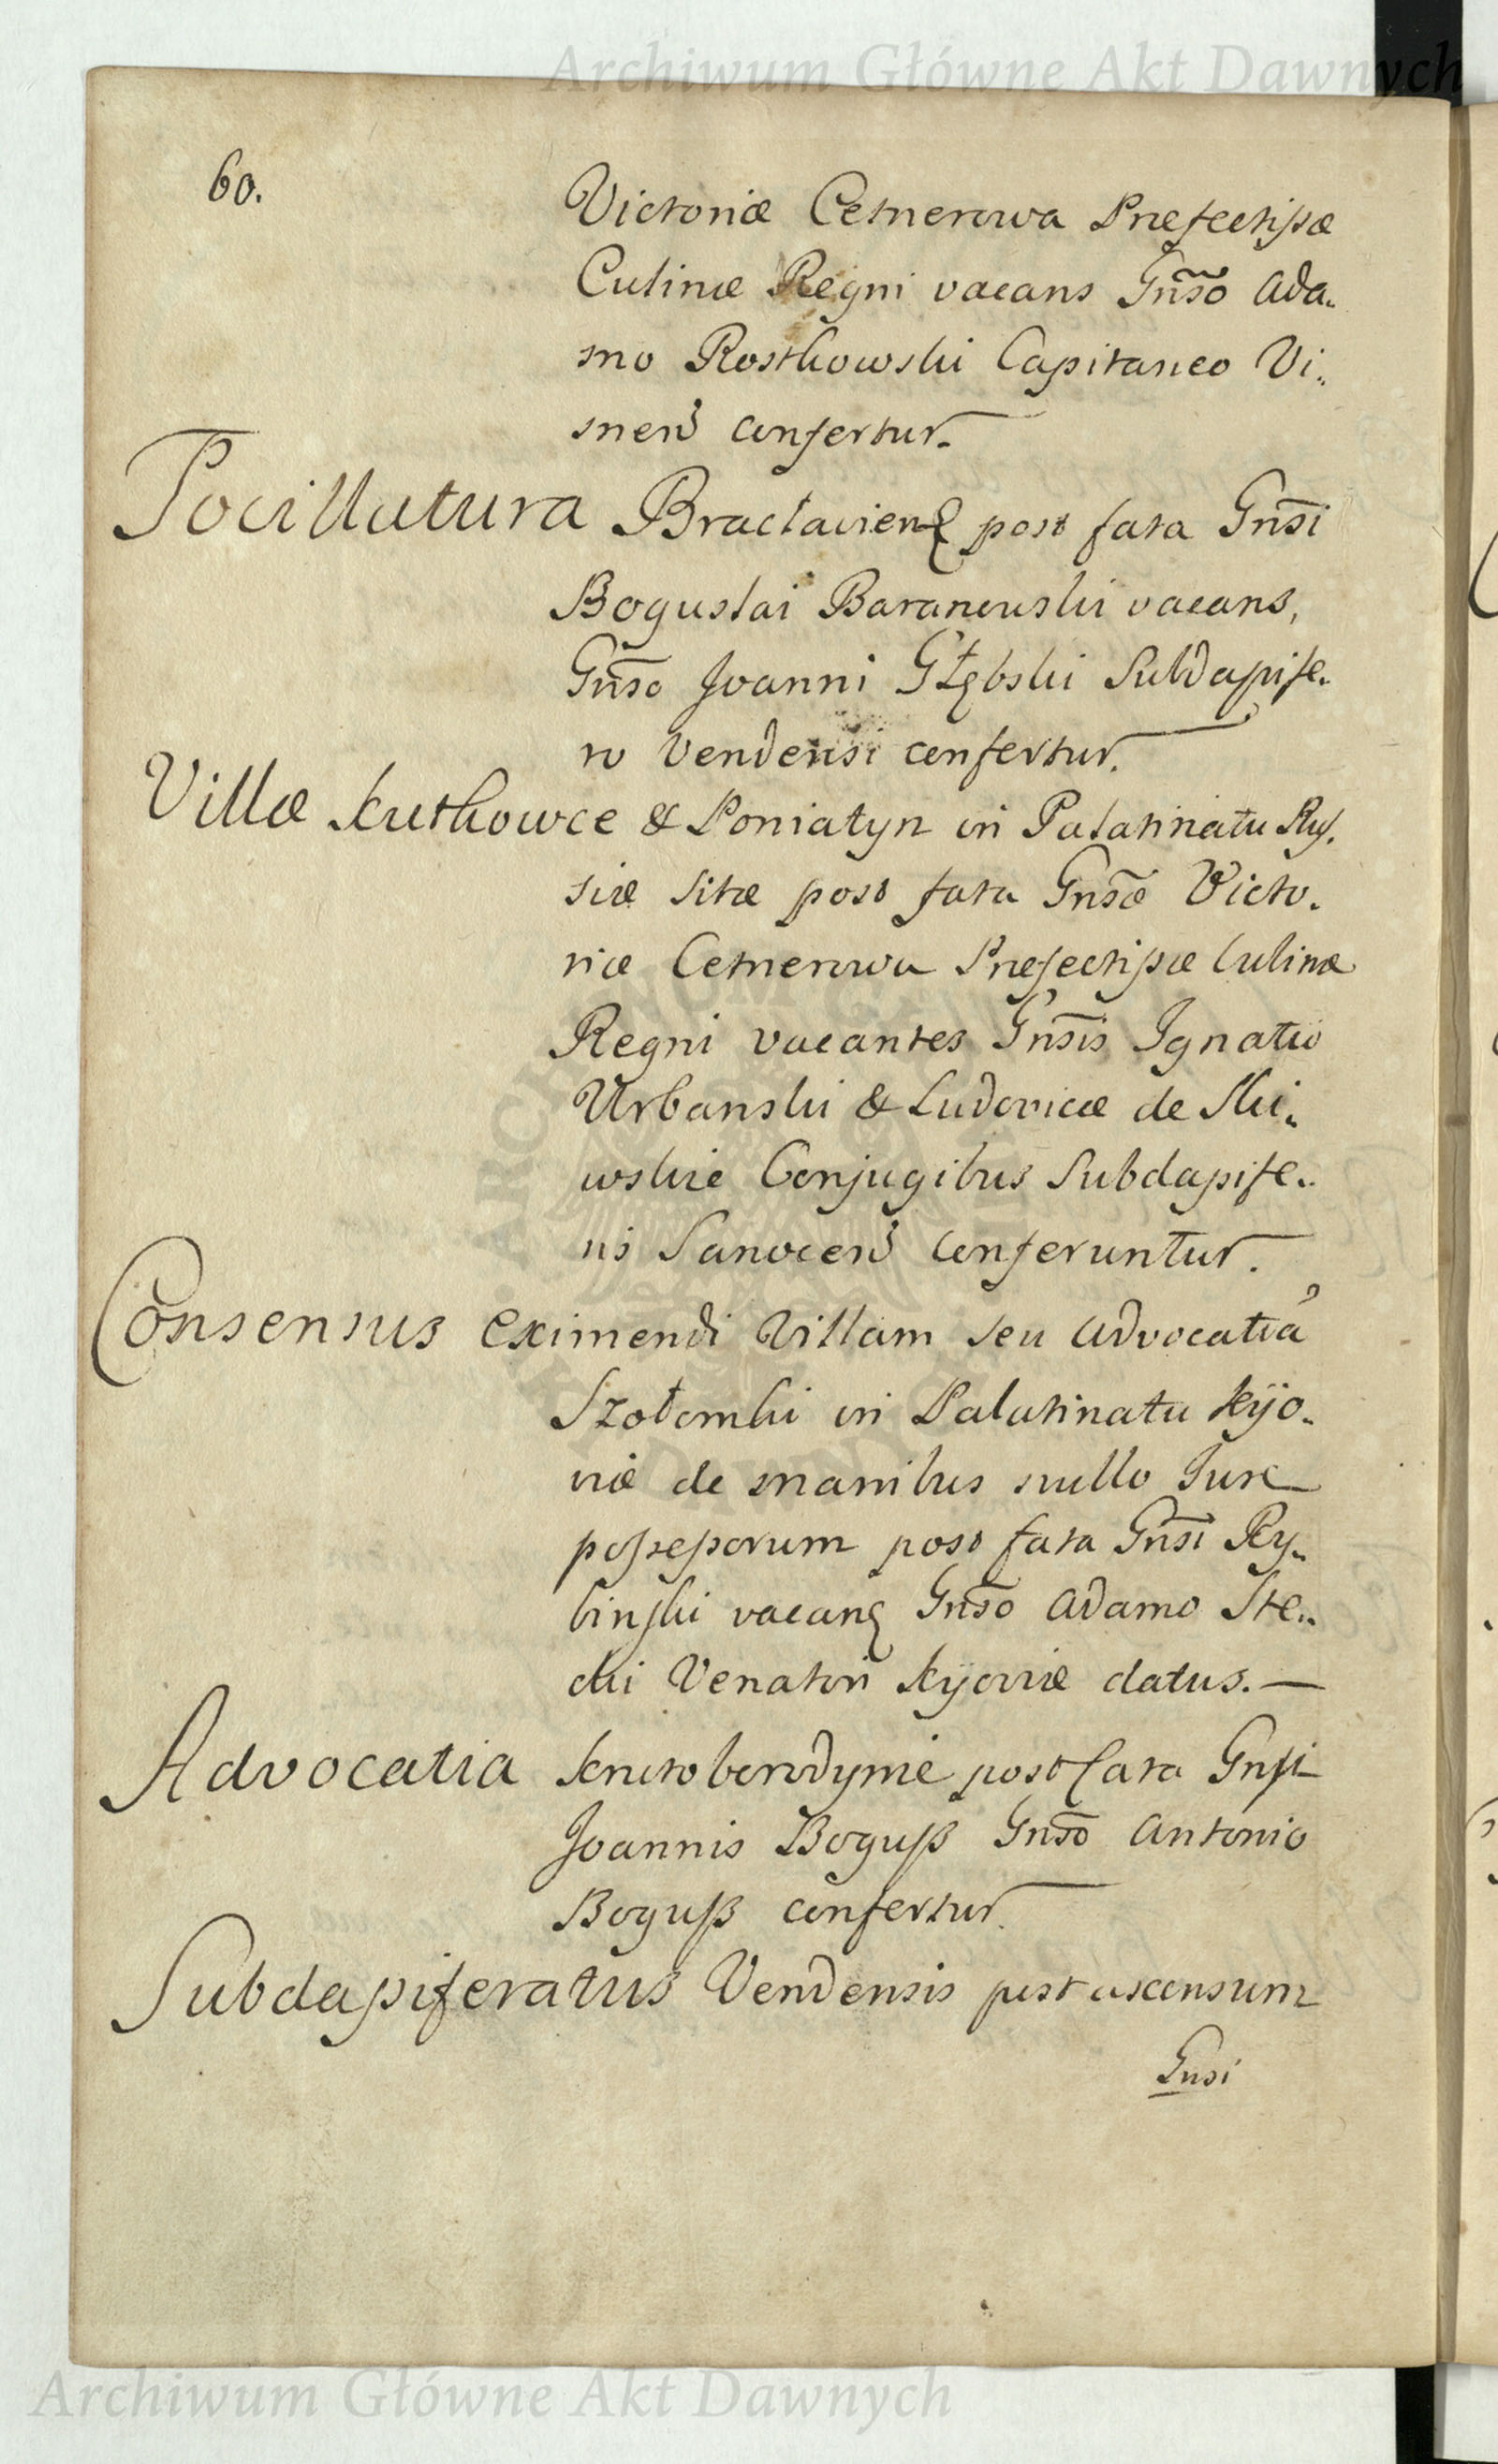 Archiwum Główne Akt Dawnych
60.
Victoriæ Cetnerowa Præfectissæ
Culinæ Regni vacans Gnso Ada-
mo Rostkowski Capitaneo Vi-
znen confertur.
Pocillatura Braclavien post fata Gnsi
Boguslai Baranowski vacans,
Gnso Joanni Głębski Subdapife-
ro Vendensi confertur.
Villæ Kutkowce & Poniatyn in Palatinatu Rus-
siæ sitæ post fata Gnsæ Victo-
riæ Cetnerowa Præfectissæ Culinæ
Regni vacantes Gnsis Ignatio
Urbanski & Ludovicæ de
Conjugibus Subdapife-
ris Sanocen conferuntur.
Consensus eximendi Villam seu Advocatia
in Palatinatu Kijo-
viæ de manibus nullo Jure
possessorum post fata Gnsi Ry-
binski vacan Gnso Adamo Ste-
cki Venatori Kijoviæ datus.—
Advocatia post fata Gnsi
Joannis Boguß Gnso Antonio
Boguß confertur.
Subdapiferatus Vendensis post ascensum
Gnsi
Archiwum Główne Akt Dawnych